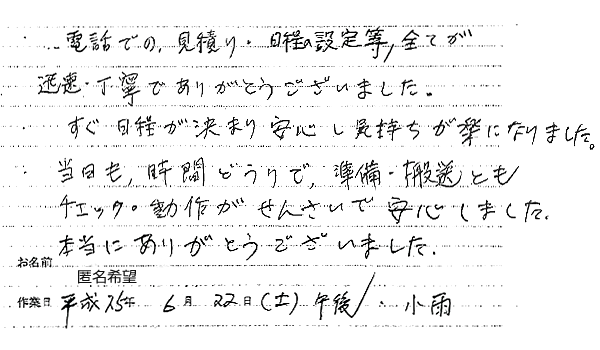 電話での、見積り・日程の設定等、全てが
迅速・丁寧でありがとうございました。
すぐ日程が決まり安心し気持ちが楽になりました。
当日も、時間どうりで、準備・搬送とも
チェック・動作がせんさいで安心しました。
本当にありがとうございました。
お名前 匿名希望
作業日 平成25年 6月 22日(土) 午後/・小雨